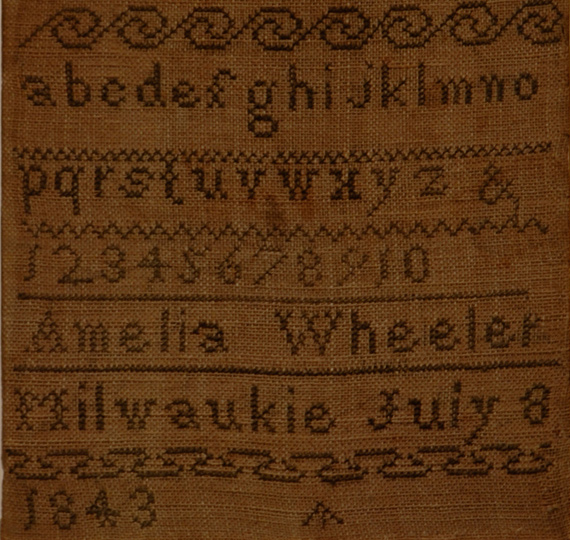 abcdefghijklmno
pqrstuvwxyz &
12345678910
Amelia Wheeler
Milwaukie July 8
1843 A